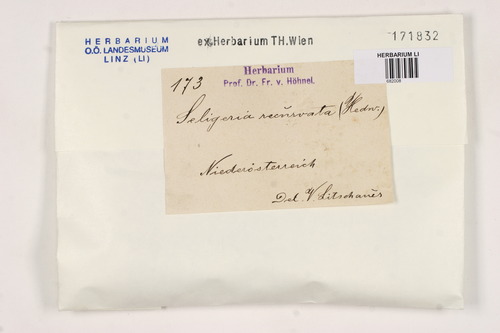 HERBARIUM
O.Ö. LANDESMUSEUM
LINZ (LI)
ex Herbarium TH.Wien
171832
HERBARIUM LI
173
Herbarium
Prof. Dr. Fr. v. Höhnel.
Seligeria recŭrvata (Hedw.)
Niederösterreich
Det. V. Litschauer